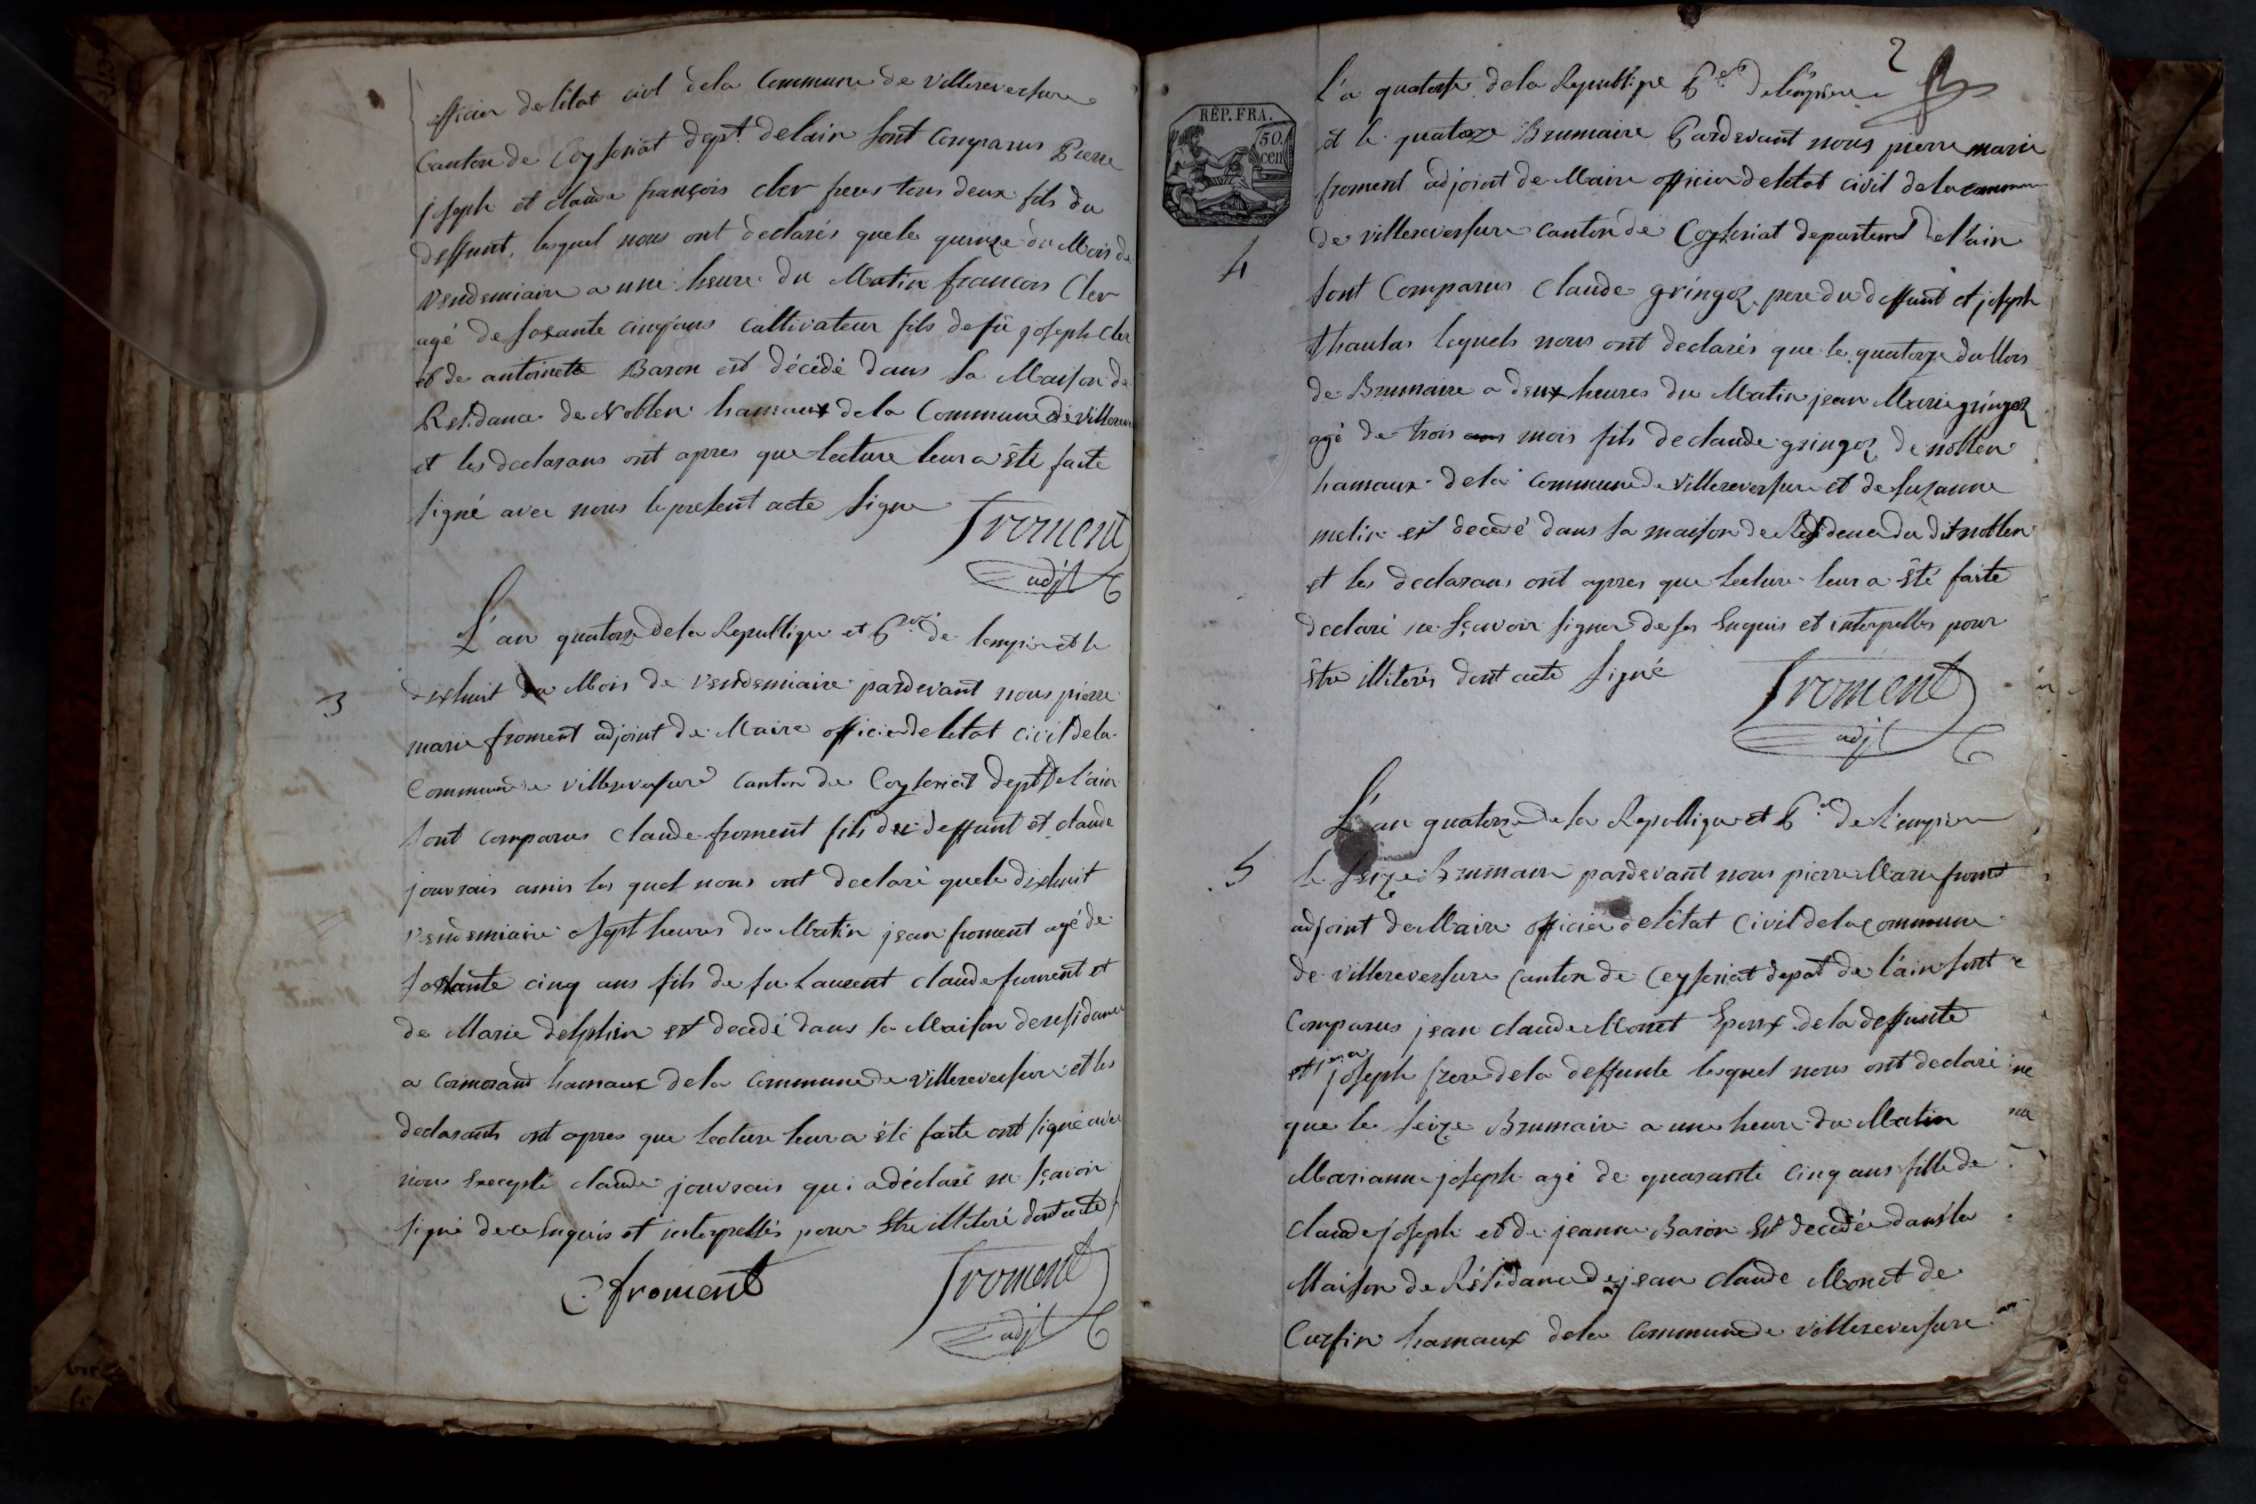 officier de l'état civil dela Commune de villereversure
Canton de Ceyseriat dept. delain sont comparus Pierre
joseph et claude françois cler freres tous deux fils du
deffunt, lesquel nous ont declarés que le quinze du Mois de
vendemiaire a une heure du Matin francois Cler
agé de soxante cinq ans cultivateur fils de fû joseph cler
et de antoinette Baron est décédé dans sa Maison de
Residance de Noblen hamaux dela Commune de villerev
et les declarans ont apres que lecture leur a êté faite
signé avec nous le present acte signe
froment
adjt
L'an quatorze dela Republique et 1er de lempire et le
3
dixhuit du Mois de vendemiaire pardevant nous pierre
marie froment adjoint de Maire officier de letat civil dela
Commune de villereversure canton de Ceyseriat dept de l'ain
sont comparus claude froment fils du deffunt et claude
jouvrais amis les quel nous ont declaré que le dixhuit
vendemiaire a sept heures du Matin jean froment agé de
soxante cinq ans fils de fu Laurent claude froment et
de Marie delphin est decedé dans sa Maison de residance
a cormorand hamaux dela commune de villereversure et les
declarants ont apres que lecture leur a été faite ont signé avec
nous Excepté claude jouvrais qui a déclaré ne sçavoir
signé de ce Enquis et interpellés pour Etre illiteré dont acte
C. froment
froment
adjt
2
RÉP. FRA.
50
cen
L'a quatorze dela Republique 1er de l'empire
et le quatorze Brumaire Pardevant nous pierre marie
froment adjoint de Maire officier de letat civil dela commune
de villereversure canton de Ceyseriat departement de l'ain
4
sont Comparus Claude gringoz pere du deffunt et joseph
thaulas lequels nous ont declarés que le quatorze du Mois
de Brumaire a deux heures du Matin jean Marie gringoz
agé de trois ans mois fils de claude gringoz de noblen
hamaux dela commune de villereversure et de suzanne
melin est decedé dans sa maison de Residence du dit noblen
et les declarans ont apres que lecture leur a êté faite
declaré ne sçavoir signer de ses Enquis et interpelles pour
être illiterés dont acte signé
froment
adjt
L'an quatorze de la Republique et 1er de L'empire
5
le seize Brumaire pardevant nous pierre Marie froment
adjoint de Maire officier de létat civil dela commune
de villereversure canton de Ceyseriat depat de l'ain sont
Comparus jean claude Monet Epoux dela deffunte
et joseph frere dela deffunte lesquel nous ont declaré
que le seize Brumaire a une heure du Matin
Marianne joseph agé de quarante cinq ans fille de
claude joseph et de jeanne Baron Est decedée dans la
Maison de Résidance de jean claude Monet de
Curfin hamaux dela commune de villereversure